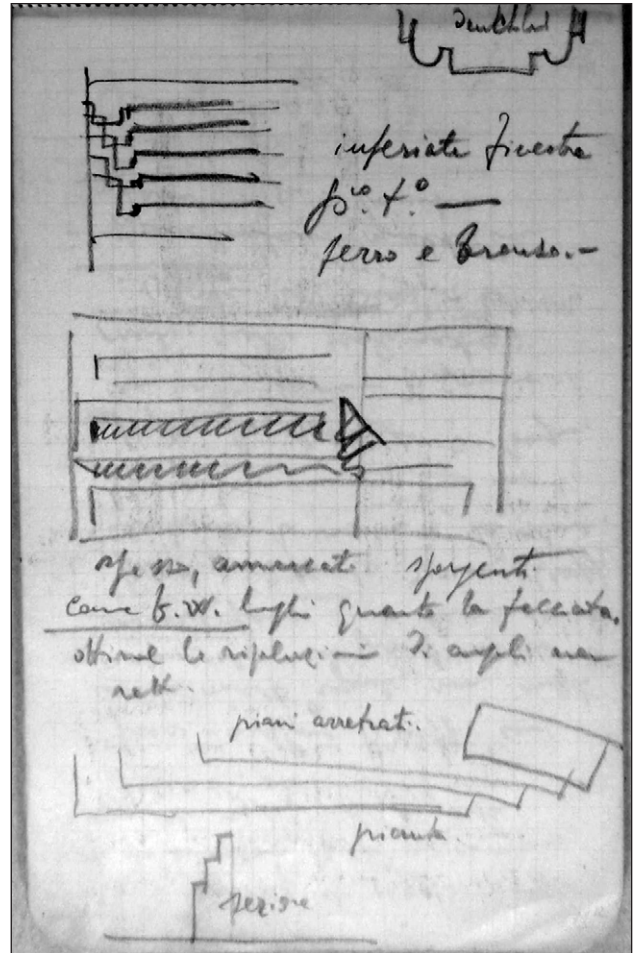 inferiate finestra
p.º t.º —
ferro e bronzo.-
spesso, ammaccate sporgenti
come f.w. lunghi quanto la facciata.
ottime le risoluzioni di angoli non
retti.
piani arretrati.
pianta.
sezione